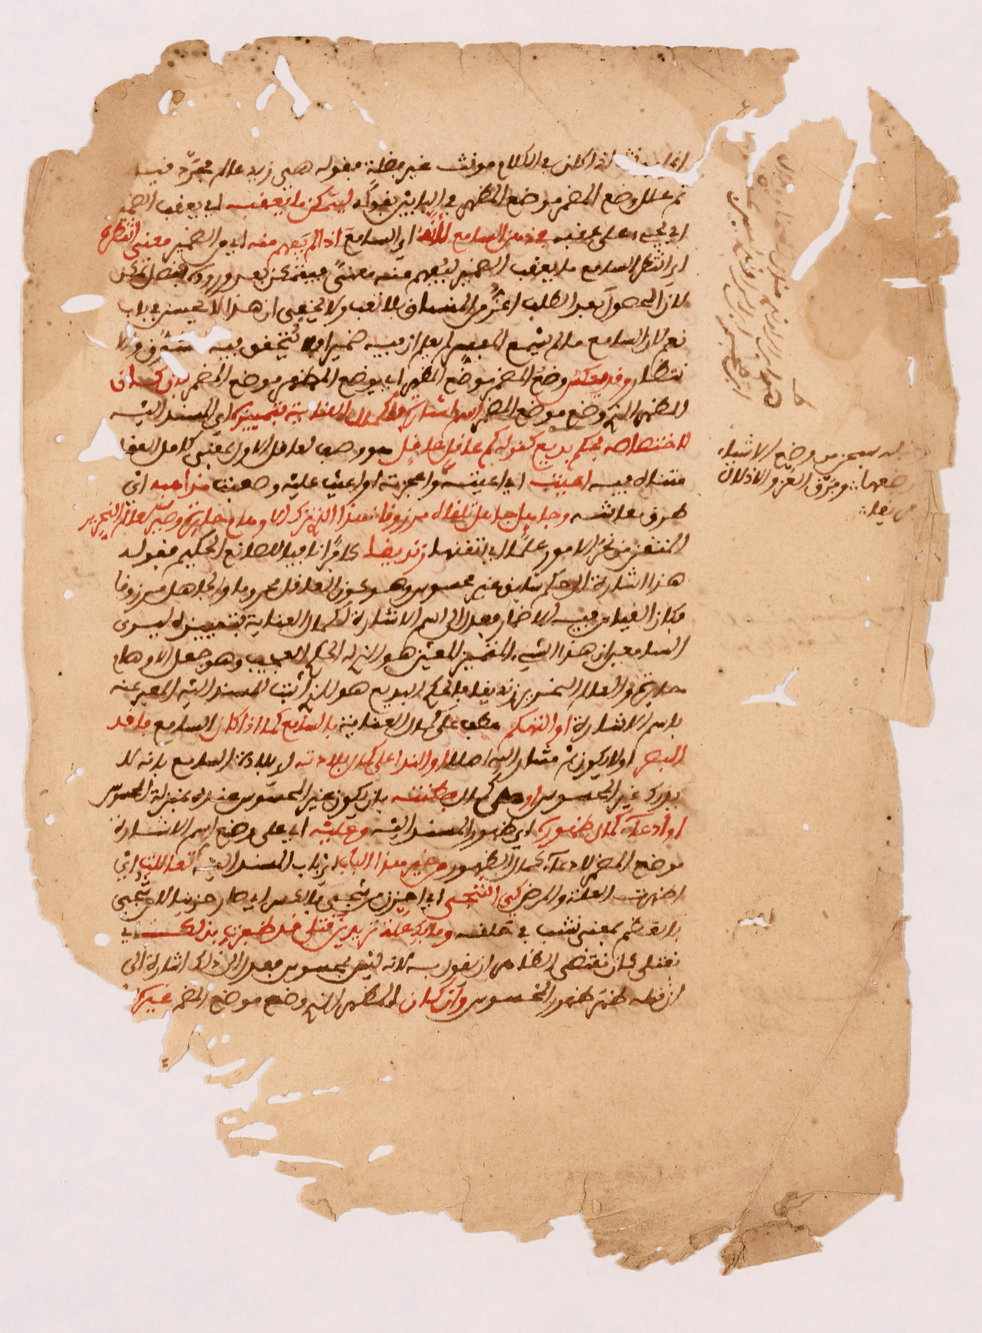 انما يؤنث اذا كان في الكلام مونث غير فضلة فقوله هي زيد عالم مجرد قيا
ثم علل وضع المضمر موضع المظهر في البابين بقوله ليتمكن ما يعقبه اي يعقب الضمير
اي يجيء على عقبه في ذهن السامع لانه اي السامع اذا لم يفهم منه اي من الضمير معنى انتظره
اي انتظر السامع ما يعقب الضمير ليفهم منه معنى فيتمكن بعد وروده فضل تمكن
لان المحصول بعد الطلب اعز من المنساق بلا تعب ولا يخفى ان هذا لا يحسن في باب
نعم لان السامع ما لم يسمع المفسر لم يعلم ان فيه ضميرا فلا يتحقق فيه التشوق والا
نتظار وقد يعكس وضع المضمر موضع المظهر اي يوضع المظهر موضع المضمر فان كان
المظهر الذي وضع موضع المضمر اسم اشارة فلكمال العناية بتمييزه اي المسند اليه
لاختصاصه بحكم بديع كقوله كم عاقل عاقل هو وصف لعاقل الاول بمعنى كامل العقل
متناه فيه اعيت اي اعيته واعجزته او اعيت عليه وصعبت مذاهبه اي
طرق معاشه وجاهل جاهل تلقاه مرزوقا هذا الذي ترك الاوهام حايرة وصير العالم النحرير
المتقن من نحر الامور علما اي اتقنها زنديقا كافرا نافيا للصانع الحكيم فقوله
هذا اشارة الى حكم سابق غير محسوس وهو كون العاقل محروما والجاهل مرزوقا
فكان القياس فيه الاضمار فعدل الى اسم الاشارة لكمال العناية بتمييزه ليرى
السامعين ان هذا الشيء المتميز المتعين هو الذي له الحكم العجيب وهو جعل الاوهام
حايرة والعالم النحرير زنديقا فالحكم البديع هو الذي اثبت للمسند اليه المعبر عنه
باسم الاشارة او التهكم عطف على كمال العناية بالسامع كما اذا كان السامع فاقد
البصر او لا يكون ثم مشار اليه اصلا او الندا على كمال بلادته اي بلادة السامع بانه لا
يدرك غير المحسوس او على كمال فطنته بان يكون غير المحسوس عنده بمنزلة المحسوس
او ادعاء كمال ظهوره اي ظهور المسند اليه وعليه اي على وضع اسم الاشارة
موضع المضمر لادعاء كمال الظهور من غير هذا الباب اي باب المسند اليه تعاللت اي
اظهرت العلة والمرض كي اشجى اي احزن من شجي بالكسر اي صار حزينا لا من شجى
بالعظم بمعنى نشب في حلقه وما بك علة تريدين قتلي قد ظفرت بذلك اي
بقتلي كان مقتضى الظاهر ان يقول به لانه ليس بمحسوس فعدل الى ذلك اشارة الى
ان قتله قد ظهر ظهور المحسوس وان كان المظهر الذي وضع موضع المضمر غيره
وضع الاشياء
العز والاذلال